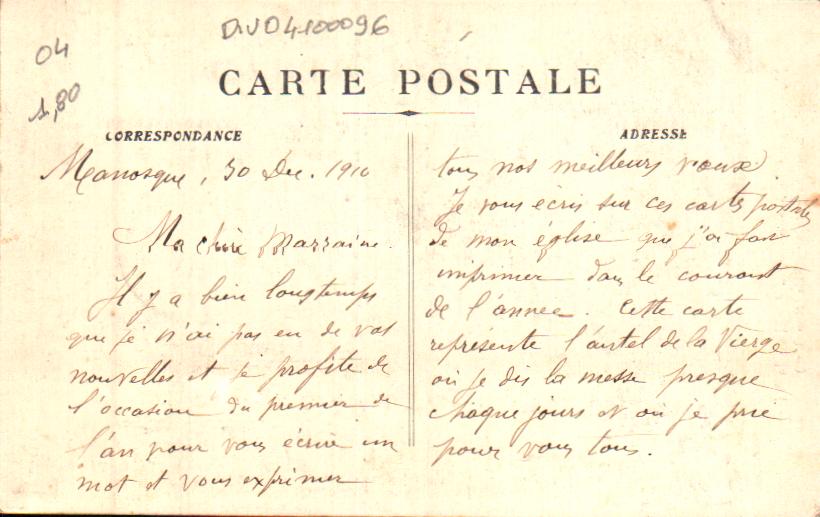 DIV04100096
04
1,80
CARTE POSTALE
CORRESPONDANCE
Manosque, 30 Déc. 1910
Ma chère Marraine.
Il y a bien longtemps
que je n'ai pas eu de vos
nouvelles et je profite de
l'occasion du premier de
l'an pour vous écrire un
mot et vous exprimer
ADRESSE
tous nos meilleurs vœux.
Je vous écris sur ces cartes postales
de mon église que j'ai fait
imprimer dans le courant
de l'année. Cette carte
représente l'autel de la Vierge
où je dis la messe presque
chaque jours et où je prie
pour vous tous.